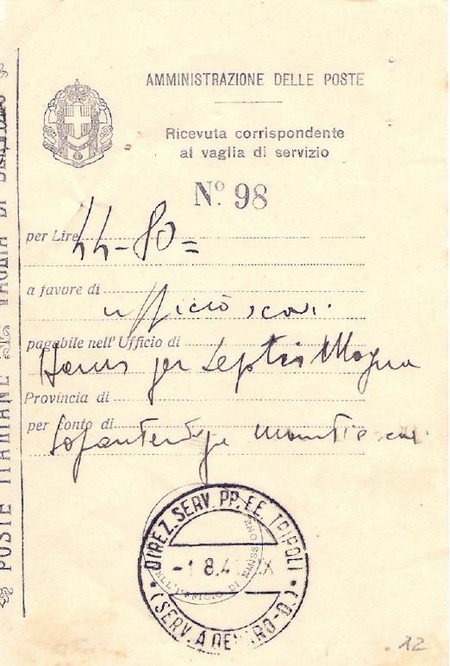 AMMINISTRAZIONE DELLE POSTE
Ricevuta corrispondente
al vaglia di servizio
N.º 98
per Lire 44-80=
a favore di
ufficio scavi
pagabile nell'Ufficio di
Homs per Leptis Magna
Provincia di
per conto di
DIREZ. SERV. PP. EE. TRIPOLI
-1 8.4 IX
(SERV. A DENARO-D.)
DELL'UFFICIO DI EMISSIONE
POSTE ITALIANE
VAGLIA DI SERVIZIO
12